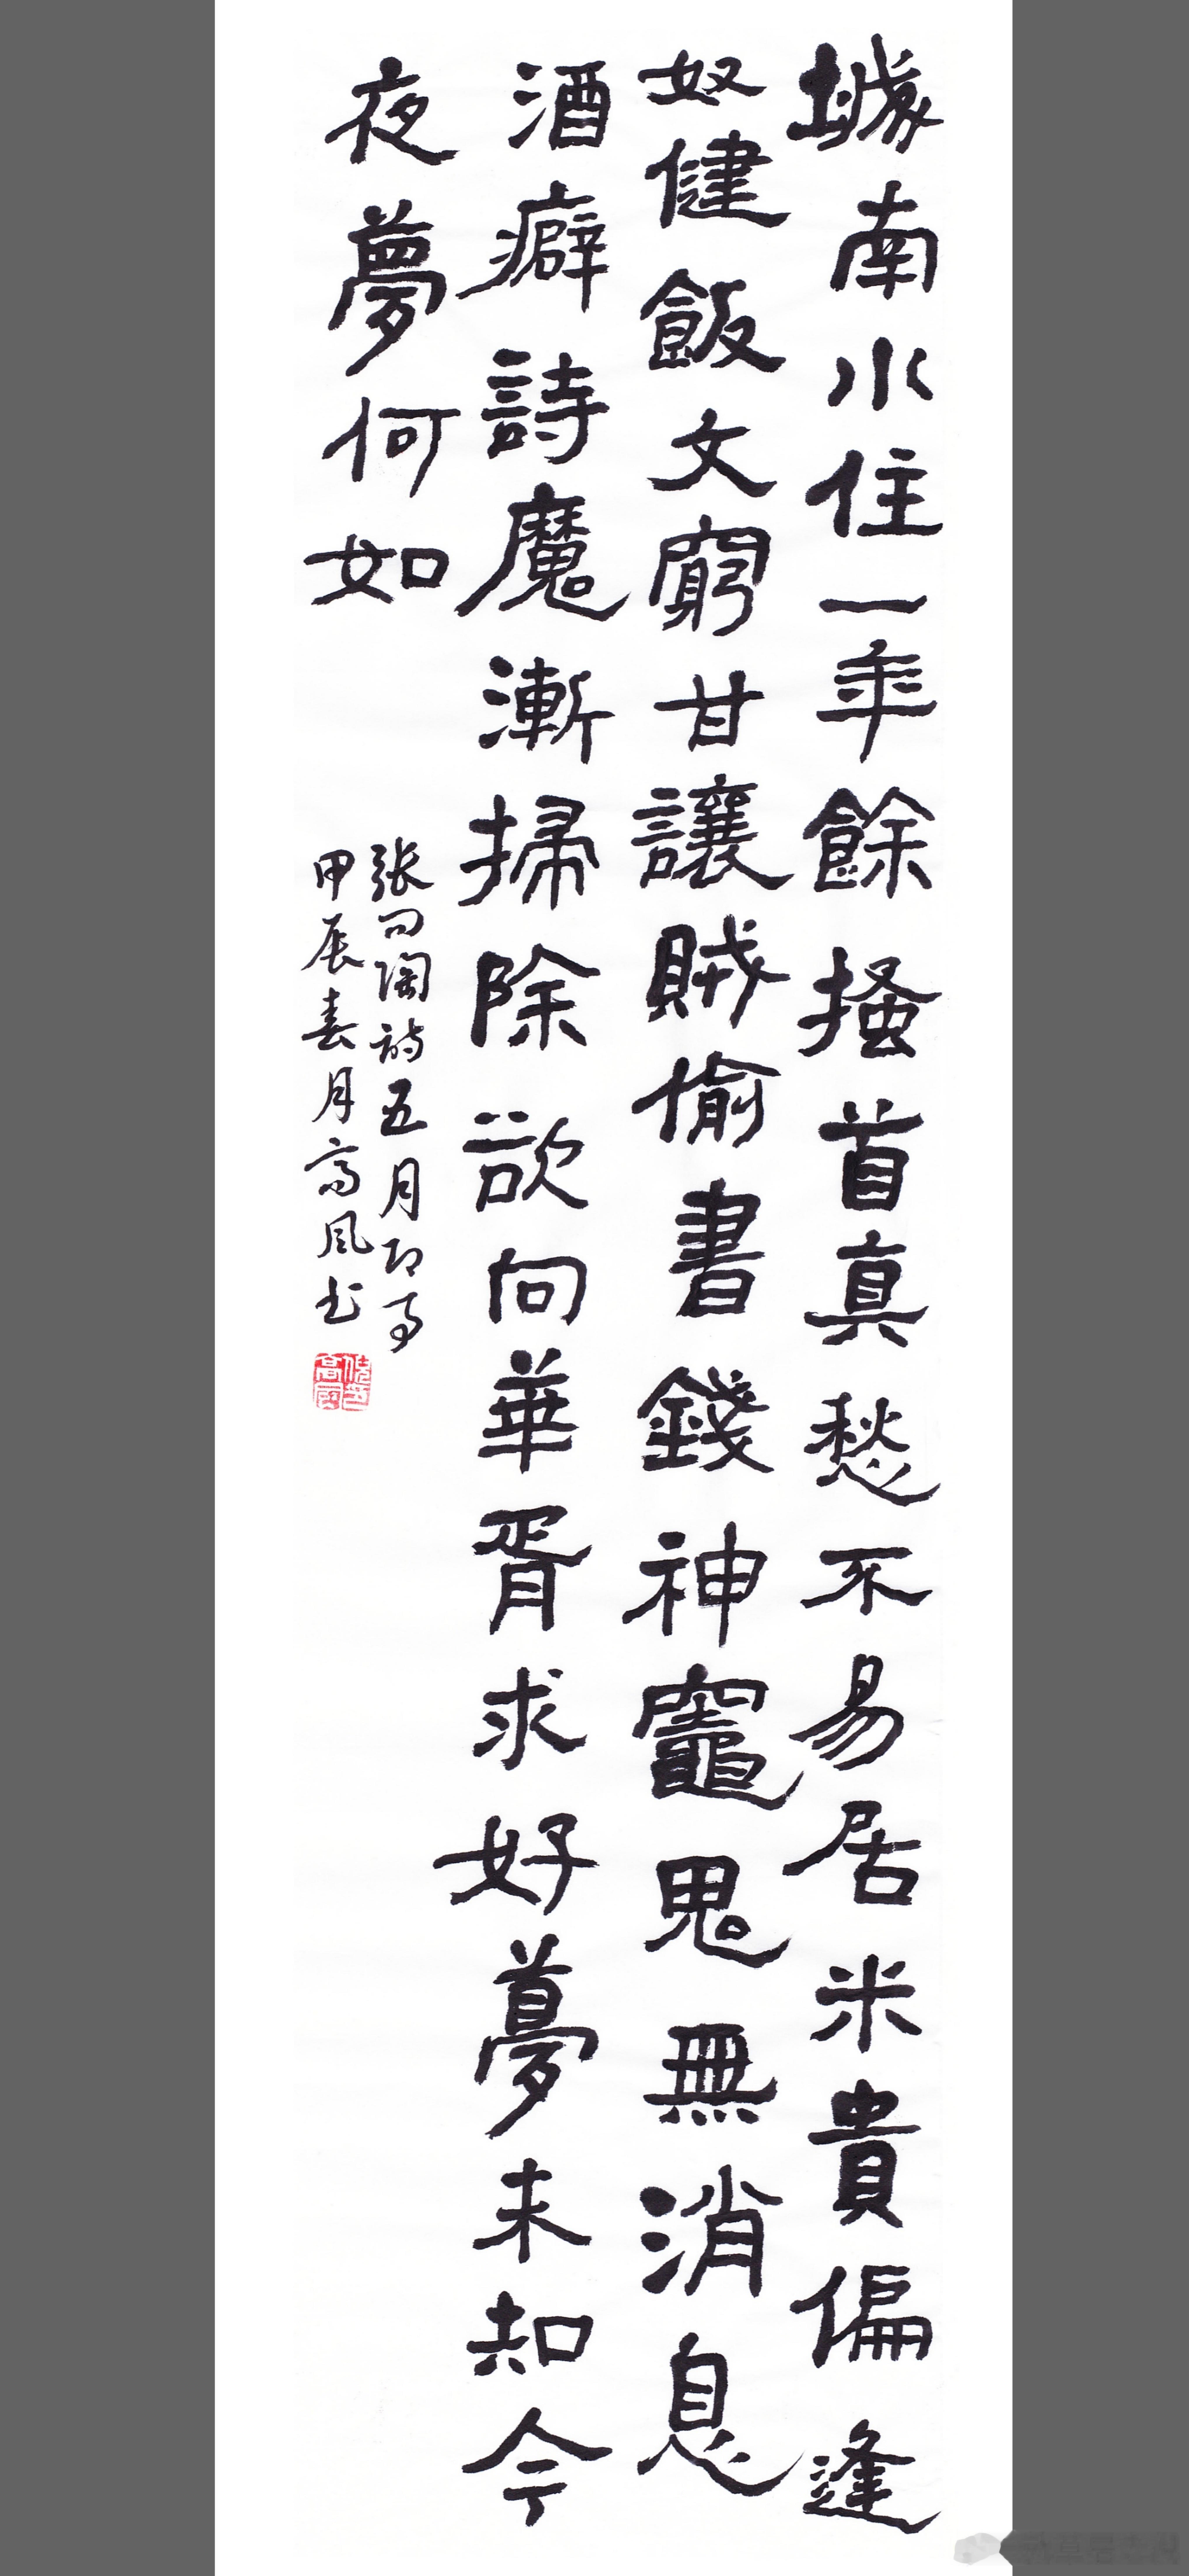 城南小住一年餘搔首真愁不易居米貴偏逢
奴健飯文窮甘讓賊偷書錢神竈鬼無消息
酒癖詩魔漸掃除欲向華胥求好夢未知今
夜夢何如
张问陶诗五月即事
甲辰春月高风书